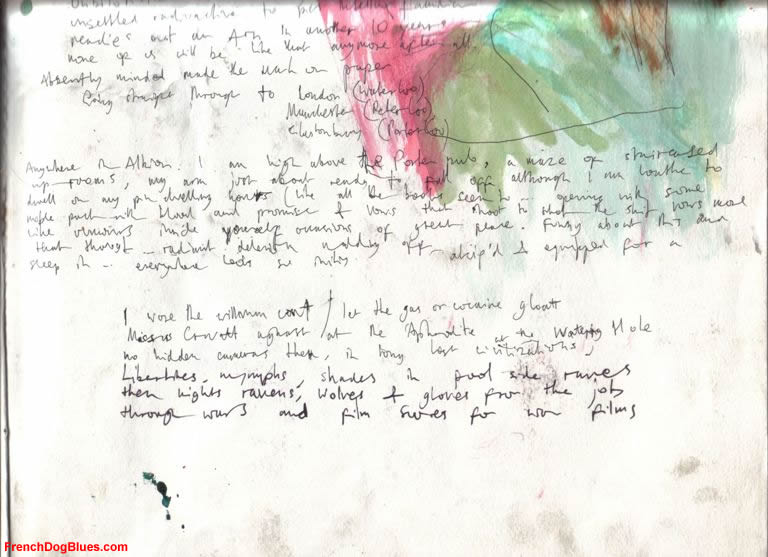 unsettled radioactive to
out an Arm. In another 10 years
none of us will be like that anymore after all.
Absently minded made the mark on paper
Going straight through to London (Waterloo)
Manchester (Peterloo)
Glastonbury (Porterloo)
Anywhere in Albion. I am high above the Porter pub, a maze of staircased
up rooms, my arm just about ready to fall off, although I am loathe to
dwell on my pin dwelling hours (like all the books seem to ... opening with some
with blood and promise & vows that shoot to the
like inside yourself occasions of great peace. Funny about this and
that thirst ... radiant & nodding off & equipped for a
sleep in ... everywhere
I wore the coat / let the gas or cocaine gloat
aghast at the Aphrodite at the Watering Hole
no hidden cameras then, in long lost civilizations,
Libertines, nymphs, shades in pool side
then nights ravens, wolves & gloves from the job
through wars and film scores for war films
FrenchDogBlues.com